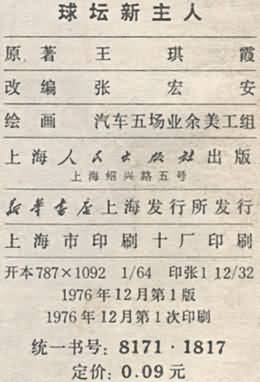 球坛新主人
原著 王琪霞
改编 张宏安
绘画 汽车五场业余美工组
上海人民出版社出版
上海绍兴路五号
新华书店上海发行所发行
上海市印刷十厂印刷
开本787×1092 1/64 印张1 12/32
1976年12月第1版
1976年12月第1次印刷
统一书号：8171·1817
定价：0.09元